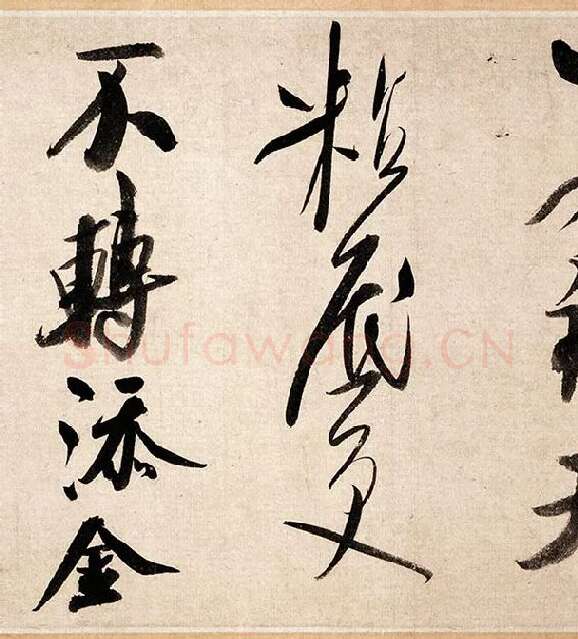 粘底更
不轉添金
Shufawang.CN